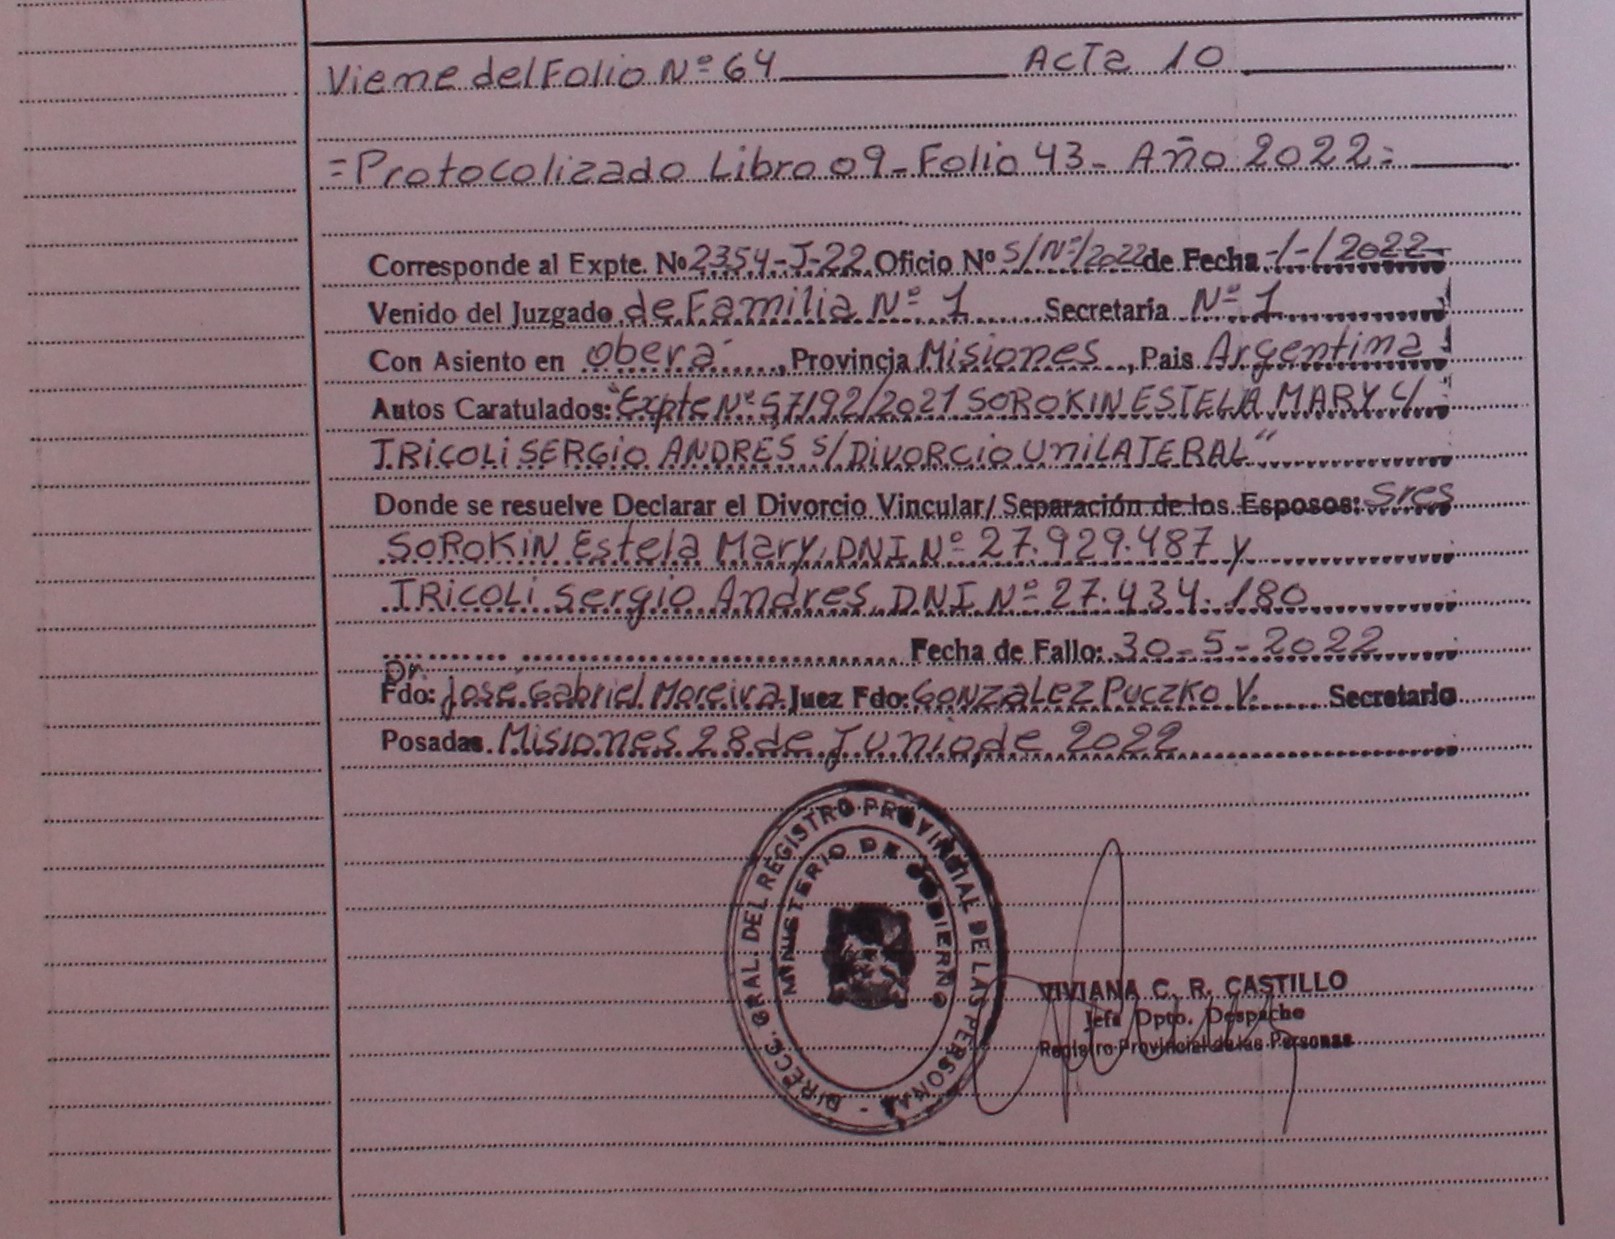 Viene del Folio Nº 64 Acta 10
= Protocolizado Libro 09 - Folio 43 - Año 2022 =
Corresponde al Expte. Nº 2354-J-22 Oficio Nº S/Nº/2022 de Fecha -/-/2022
Venido del Juzgado de Familia Nº 1 Secretaría Nº 1
Con Asiento en oberá, Provincia Misiones, Pais Argentina
Autos Caratulados: "Expte Nº 57192/2021 SOROKIN ESTELA MARY C/
TRICOLI SERGIO ANDRES S/ DIVORCIO UNILATERAL"
Donde se resuelve Declarar el Divorcio Vincular/ Separación de los Esposos: Sres
SOROKIN Estela Mary, DNI Nº 27.929.487 y
TRICOLI Sergio Andres, DNI Nº 27.434.180
Fecha de Fallo: 30-5-2022
Dr.
Fdo: José Gabriel Moreira Juez Fdo: GONZALEZ PUCZKO V. Secretario
Posadas Misiones 28 de Junio de 2022
DIRECC. GRAL. DEL REGISTRO PROVINCIAL DE LAS PERSONAS -
MINISTERIO DE GOBIERNO
VIVIANA C. R. CASTILLO
Jefa Dpto. Despacho
Registro Provincial de las Personas